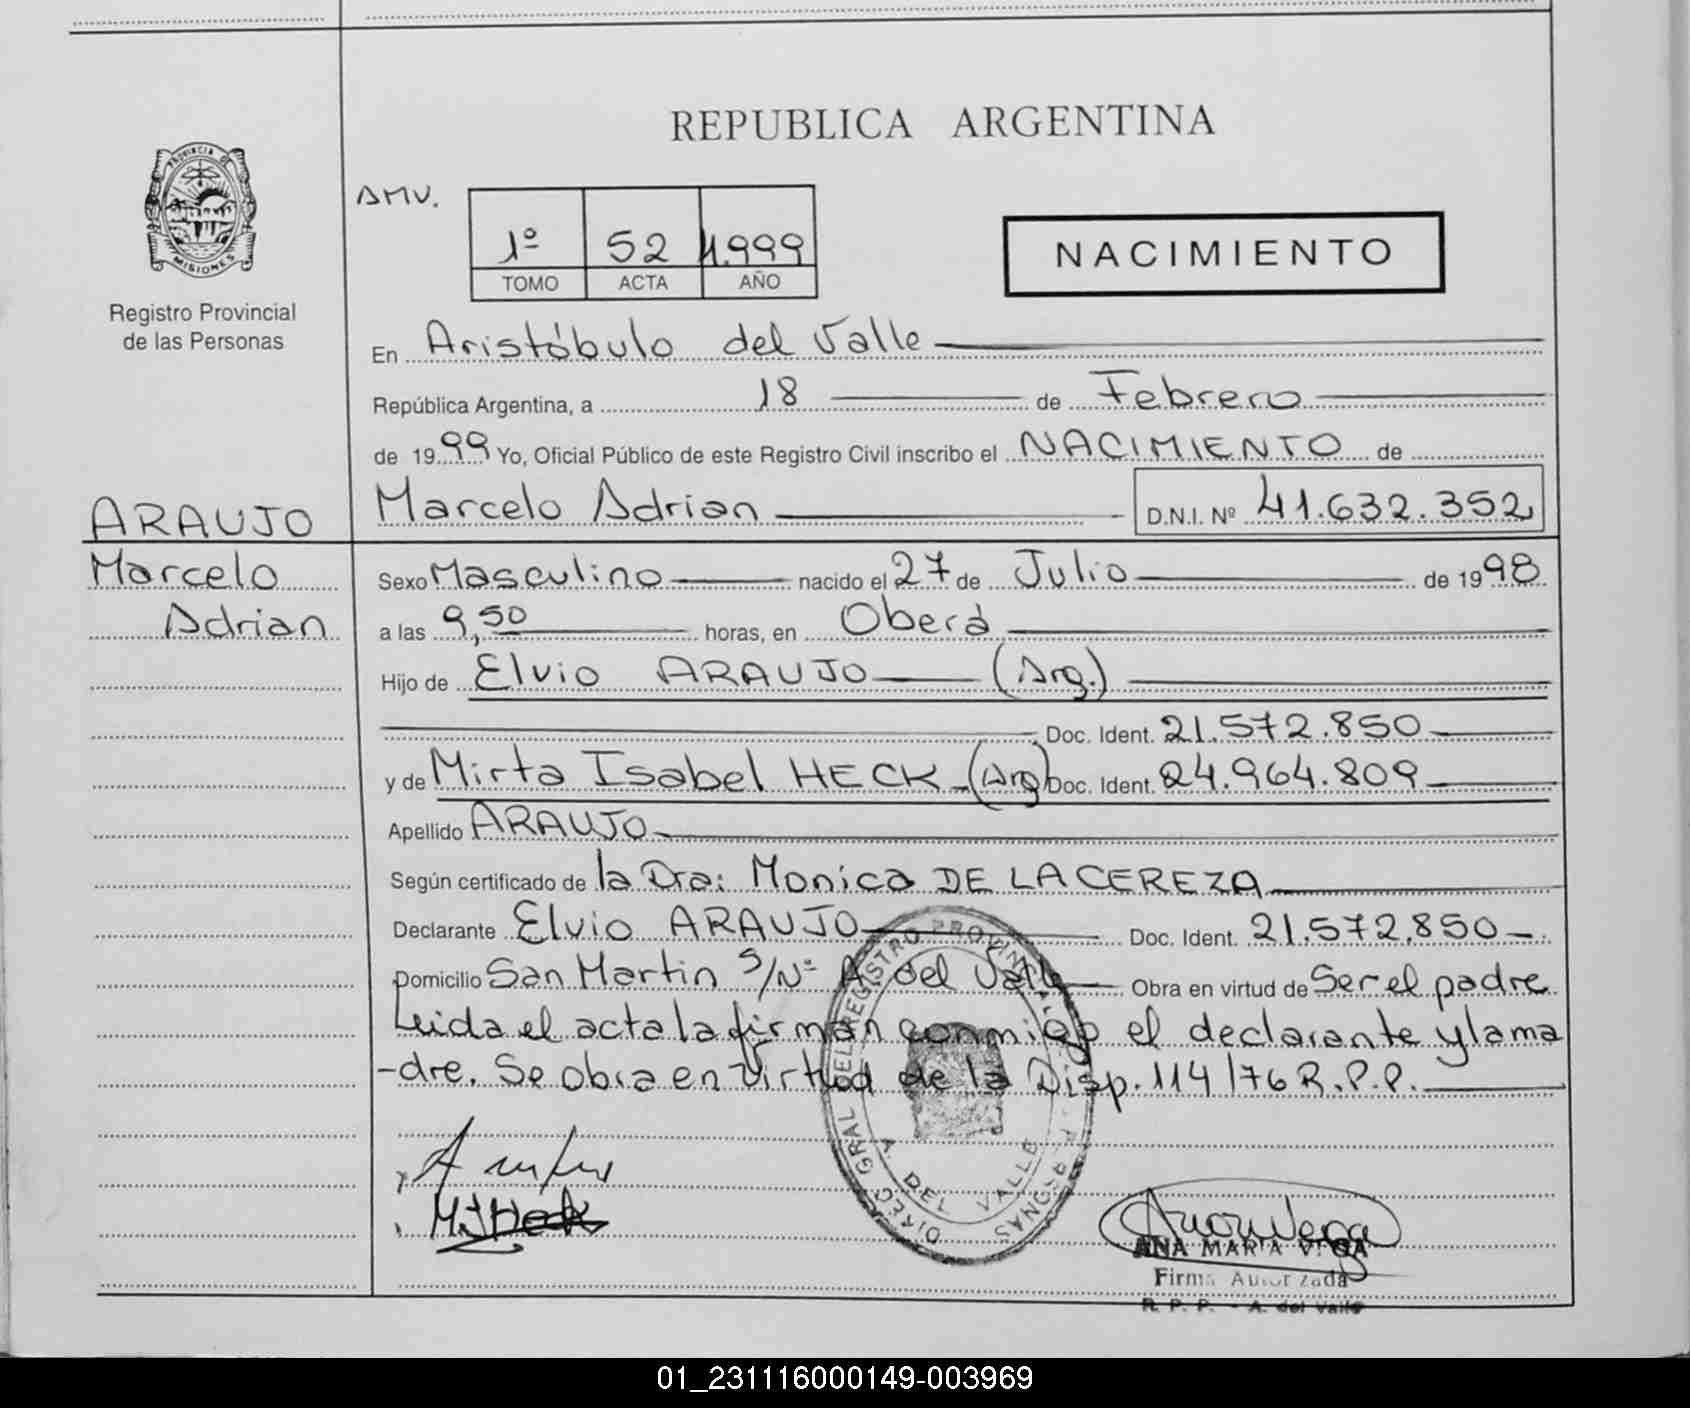 REPUBLICA ARGENTINA
PROVINCIA DE
MISIONES
Registro Provincial
de las Personas
AMV.
1º 52 1.999
TOMO ACTA AÑO
NACIMIENTO
En Aristóbulo del Valle
República Argentina, a 18 de Febrero
de 1999 Yo, Oficial Público de este Registro Civil inscribo el NACIMIENTO de
ARAUJO
Marcelo
Adrian
Marcelo Adrian D.N.I. Nº 41.632.352
Sexo Masculino nacido el 27 de Julio de 1998
a las 9,50 horas, en Oberá
Hijo de Elvio ARAUJO (Arg.)
Doc. Ident. 21.572.850
y de Mirta Isabel HECK (Arg) Doc. Ident. 24.964.809
Apellido ARAUJO
Según certificado de la Dra: Monica DE LA CEREZA
Declarante Elvio ARAUJO Doc. Ident. 21.572.850
Domicilio San Martin S/Nº A. del Valle Obra en virtud de Ser el padre
Leida el acta la firman conmigo el declarante y la ma
-dre. Se obra en virtud de la Disp. 114/76 R.P.P.
DIREC. GRAL DEL REGISTRO PROVIN
PERSONAS
A. DEL VALLE
M I Heck
ANA MARIA VEGA
Firma Autorizada
R. P. P. - A. del Valle
01_231116000149-003969